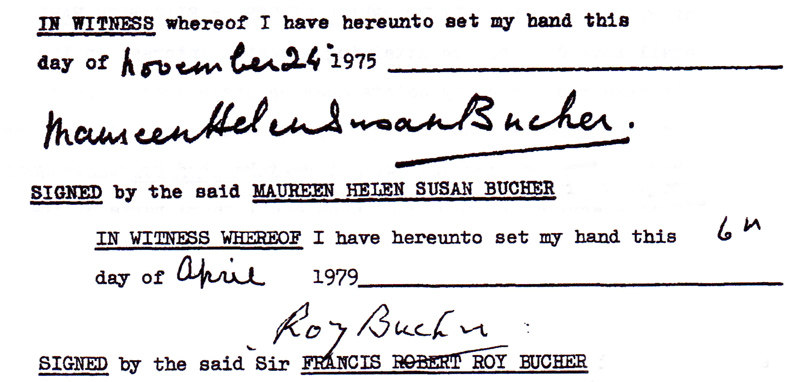 IN WITNESS whereof I have hereunto set my hand this
day of November 24 1975
Maureen Helen Susan Bucher.
SIGNED by the said MAUREEN HELEN SUSAN BUCHER
IN WITNESS WHEREOF I have hereunto set my hand this 6th
day of April 1979
Roy Bucher
SIGNED by the said Sir FRANCIS ROBERT ROY BUCHER